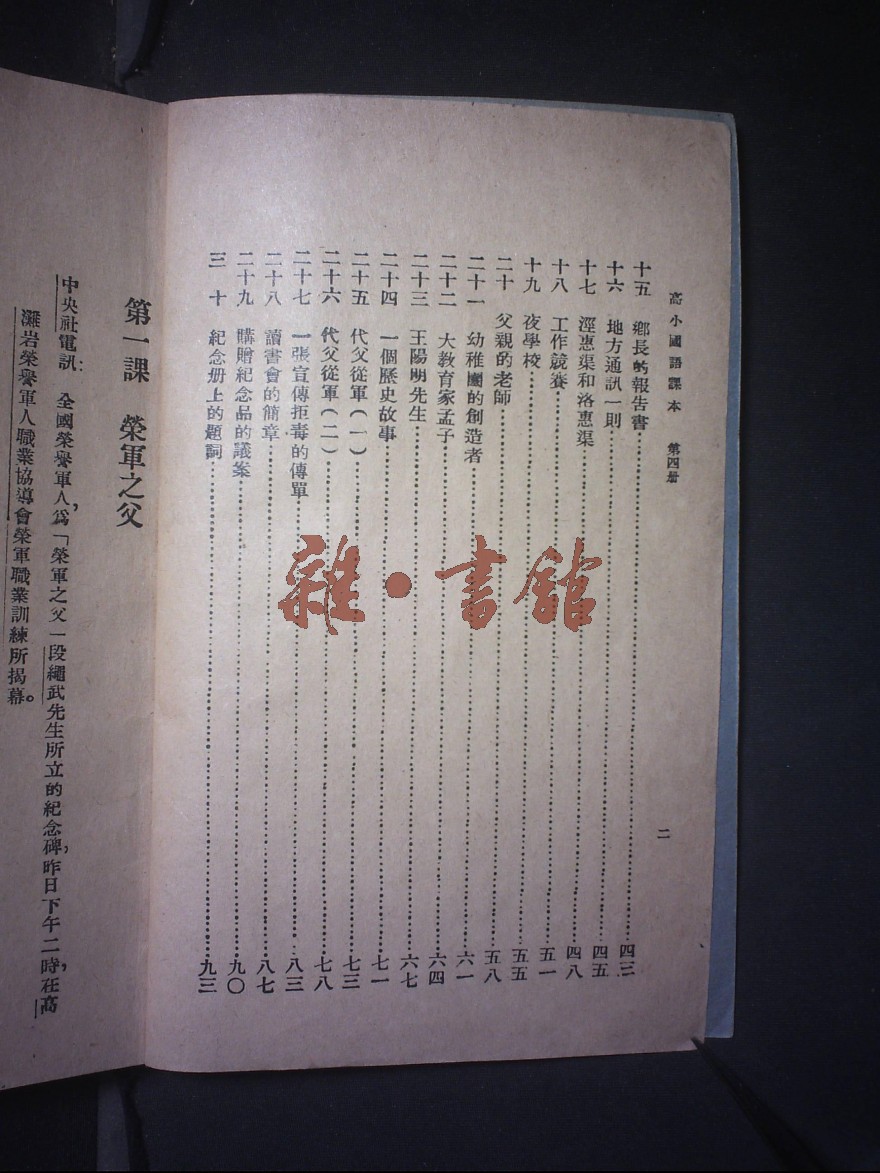 高小國語課本 第四册
二
十五 鄉長的報告書 四三
十六 地方通訊一則 四五
十七 涇惠渠和洛惠渠 四八
十八 工作競賽 五一
十九 夜學校 五五
二十 父親的老師 五八
二十一 幼稚園的創造者 六一
二十二 大教育家孟子 六四
二十三 王陽明先生 六七
二十四 一個歷史故事 七一
二十五 代父從軍(一) 七三
二十六 代父從軍(二) 七八
二十七 一張宣傳拒毒的傳單 八三
二十八 讀書會的簡章 八七
二十九 購贈紀念品的議案 九〇
三十 紀念册上的題詞 九三
第一課 榮軍之父
中央社電訊:全國榮譽軍人,爲「榮軍之父」段繩武先生所立的紀念碑,昨日下午二時,在高
灘岩榮譽軍人職業協導會榮軍職業訓練所揭幕。
雜·書館